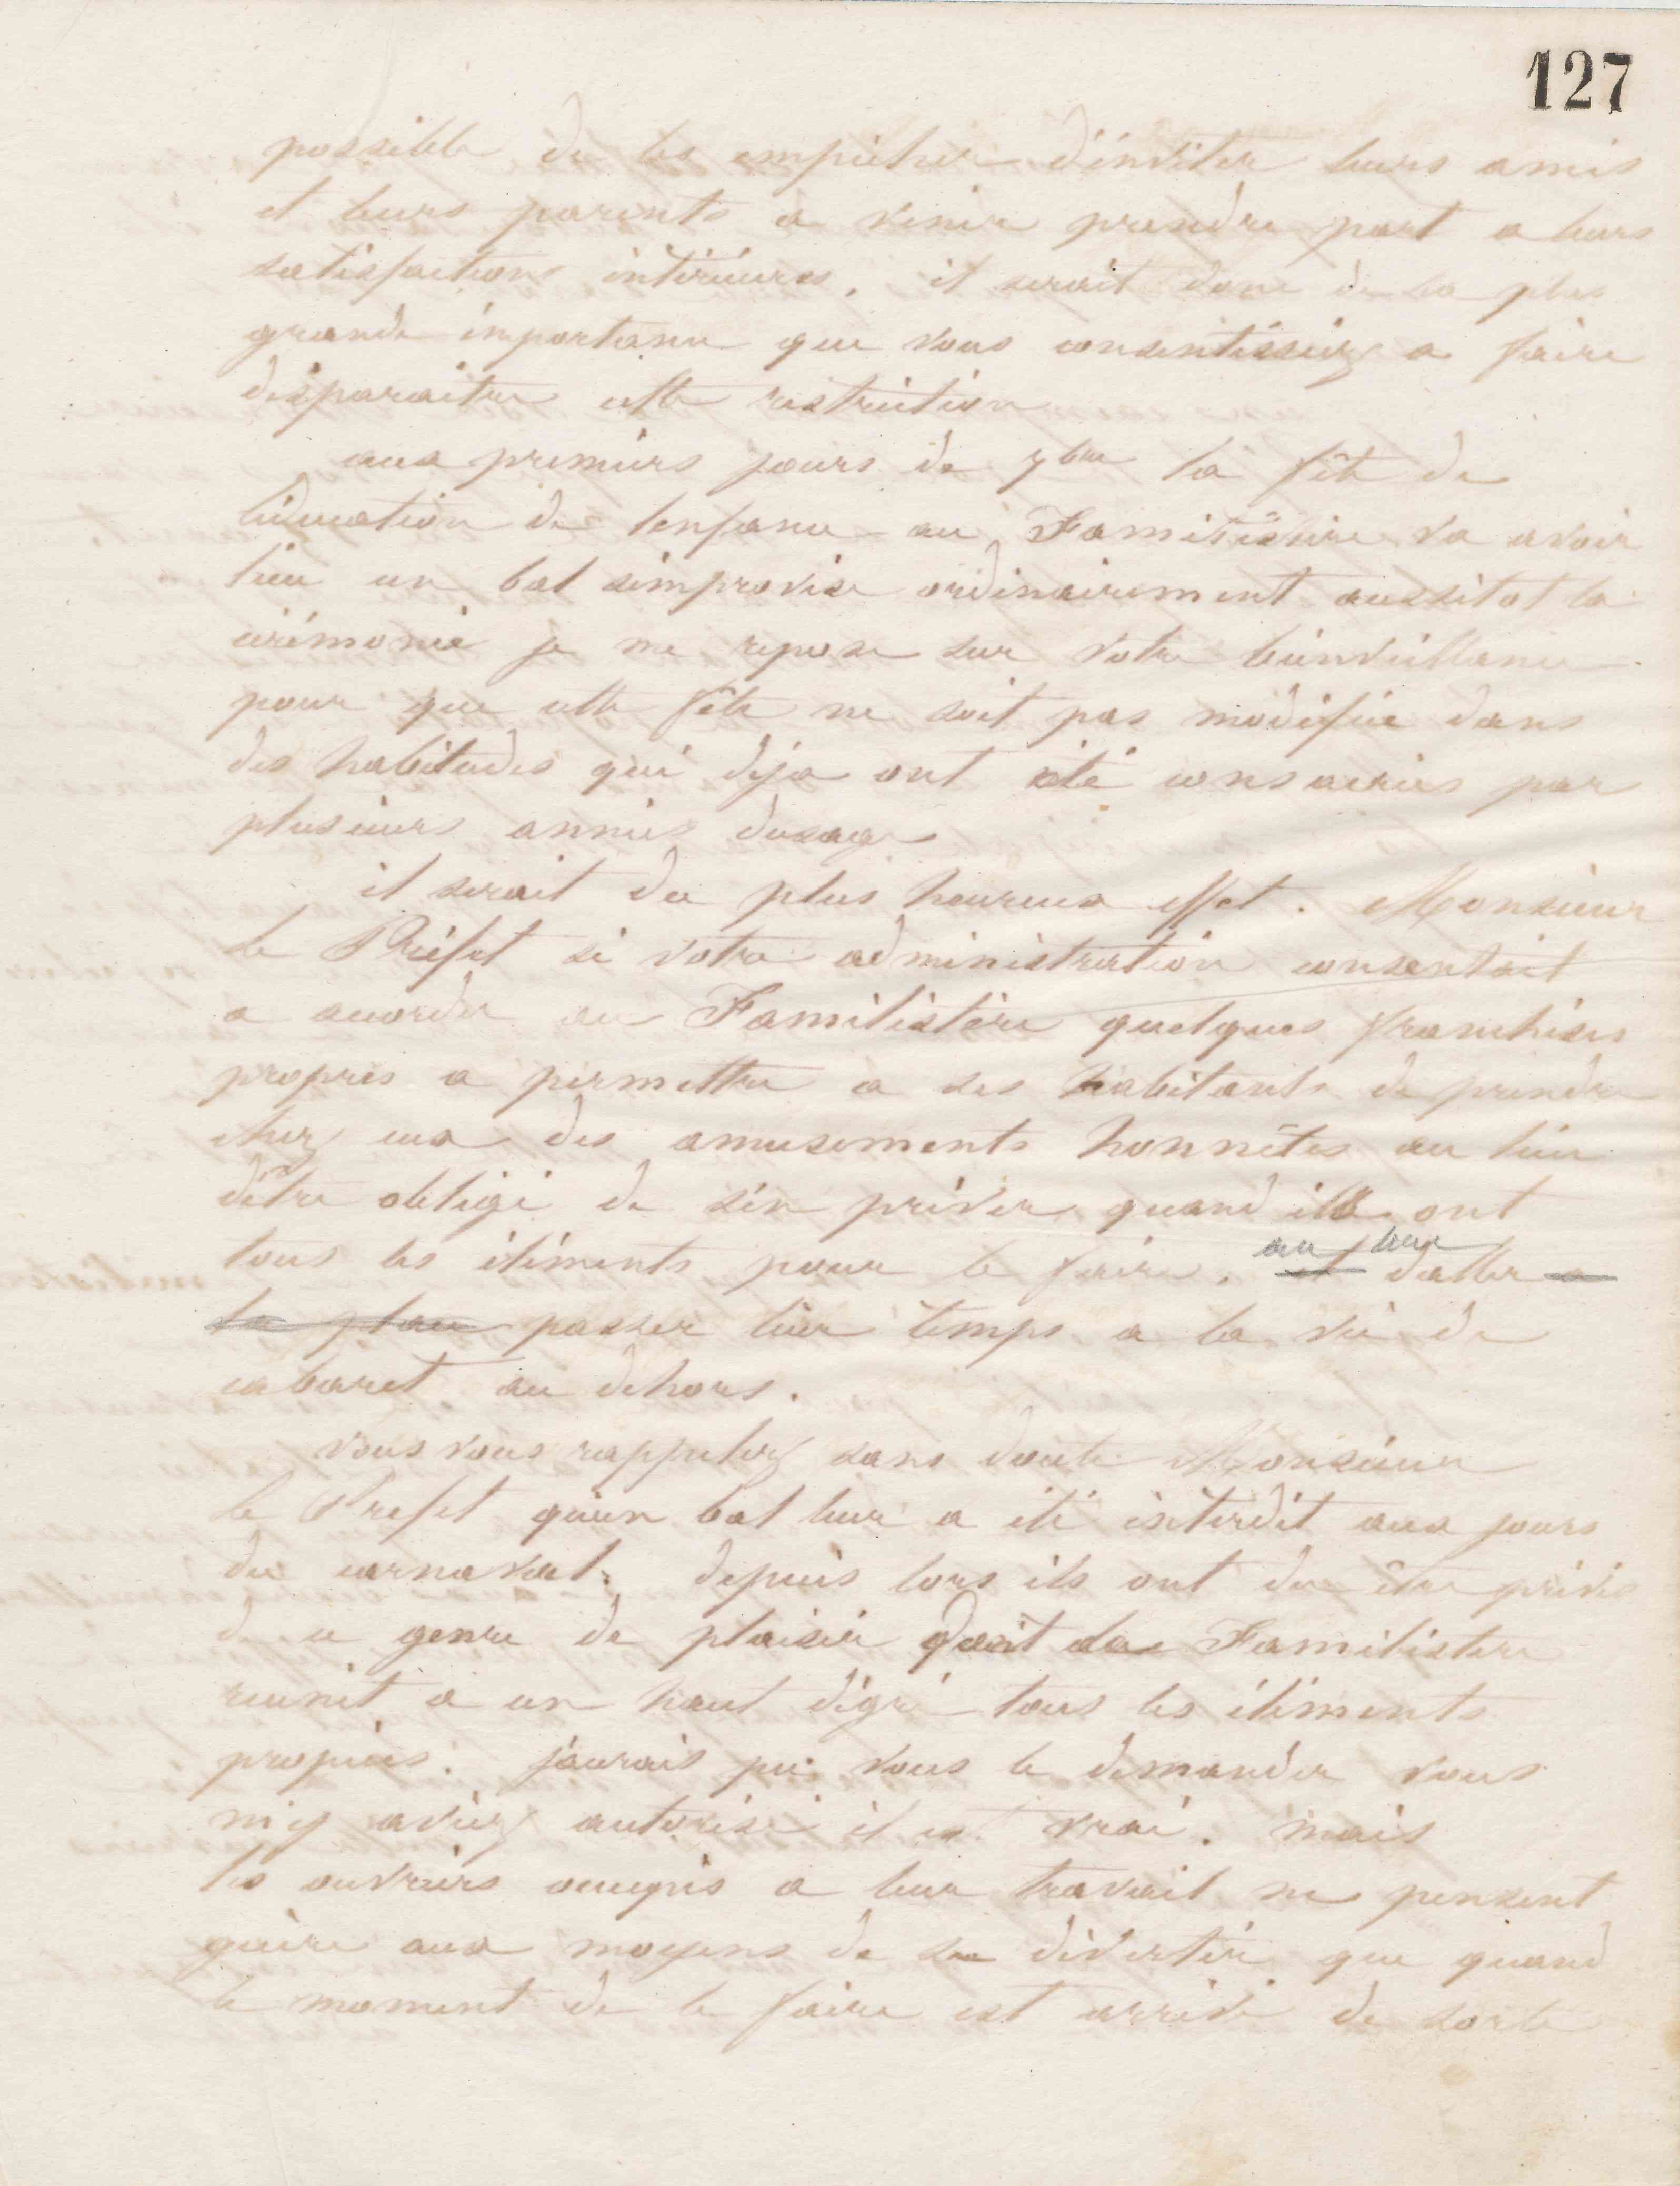 127
possible de les empêcher d'inviter leurs amis
et leurs parents a venir prendre part a leurs
satisfactions intérieures. il serait donc de la plus
grande importance que vous consentissiez a faire
disparaitre cette restriction
aux premiers jours de 7bre la fête de
léducation de lenfance au Familistère va avoir
lieu un bal simprovise ordinairement aussitot la
cérémonie je me repose sur votre bienveillance
pour que cette fête ne soit pas modifiée dans
des habitudes qui déja ont été consacrées par
plusieurs années dusage
il serait du plus heureux effet. Monsieur
le Préfet si votre administration consentait
a accorder au Familistère quelques franchises
propres a permettre a ses habitants de prendre
chez eux des amusements honnêtes au lieu
dêtre obligé de sen priver quand ils ont
tous les éléments pour le faire. et au lieu daller a
la place passer leur temps a la vie de
cabaret au dehors.
vous vous rappelez sans doute Monsieur
le Préfet qu'un bal leur a été interdit aux jours
du carnaval. depuis lors ils ont du être privés
de ce genre de plaisir dont le Familistère
reunit a un haut dégré tous les éléments
propices. jaurais pu vous le demander vous
m'y aviez autorisé il est vrai. mais
les ouvriers occupés a leur travail ne pensent
guère aux moyens de se divertir que quand
le moment de le faire est arrivé de sorte